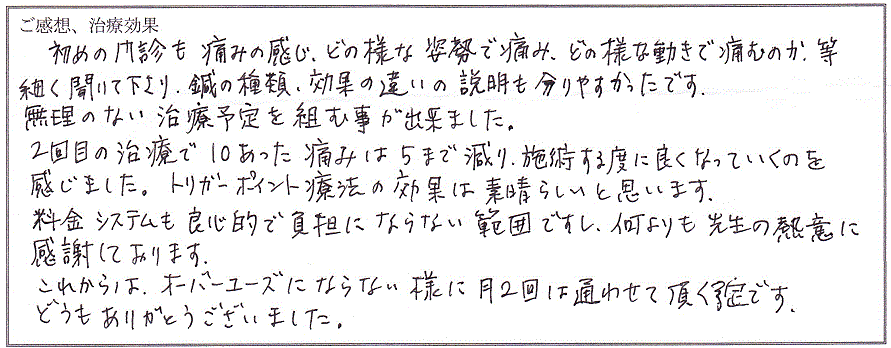 ご感想、治療効果
初めの門診も痛みの感じ、どの様な姿勢で痛み、どの様な動きで痛むのか、等
細く聞いて下さり、鍼の種類、効果の違いの説明も分りやすかったです。
無理のない治療予定を組む事が出来ました。
2回目の治療で10あった痛みは5まで減り、施術する度に良くなっていくのを
感じました。トリガーポイント療法の効果は素晴らしいと思います。
料金システムも良心的で負担にならない範囲ですし、何よりも先生の熱意に
感謝しております。
これからは、オーバーユーズにならない様に月2回は通わせて頂く予定です。
どうもありがとうございました。